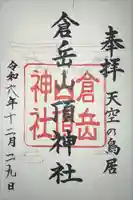 奉拝
天空の鳥居
倉岳山頂神社
倉岳神社
令和六年十二月二九日